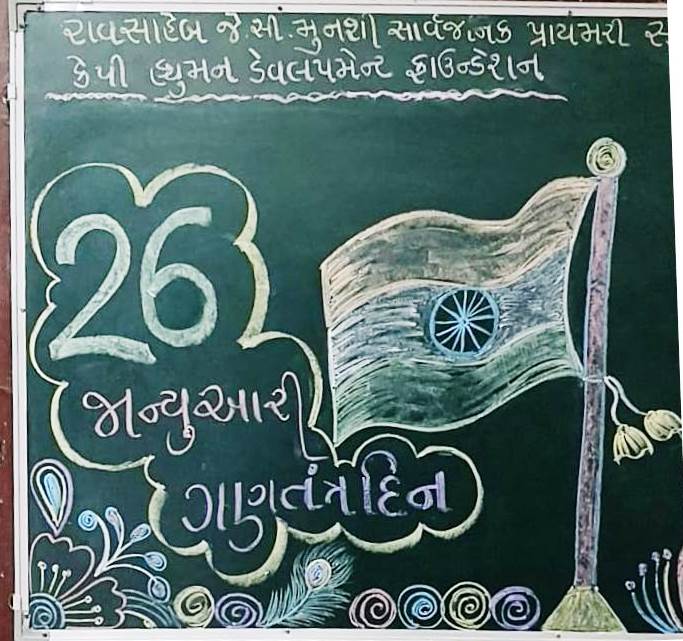 રાવસાહેબ જે.સી.મુનશી સાર્વજનિક પ્રાયમરી
કેપી હ્યુમન ડેવલપમેન્ટ ફાઉન્ડેશન
26
જાન્યુઆરી
ગણતંત્ર દિન